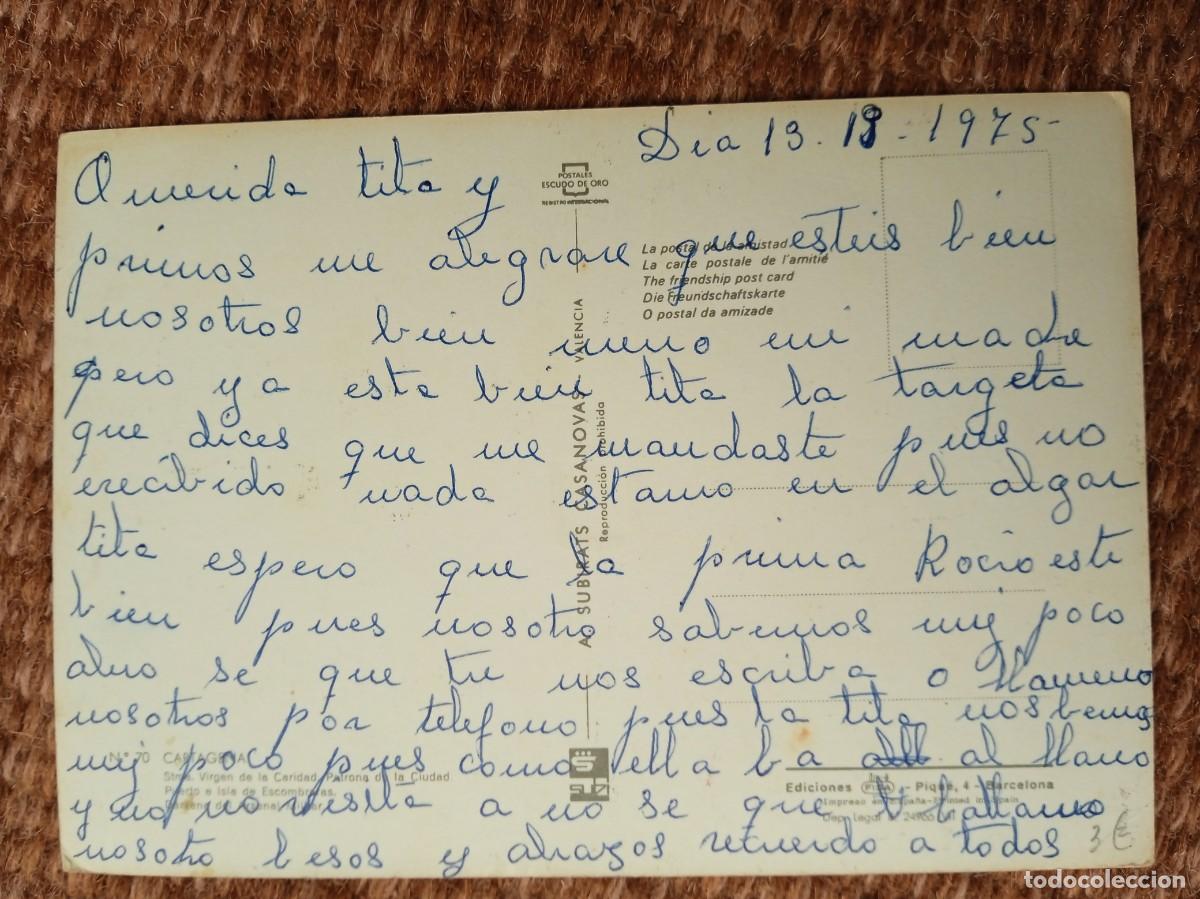 Dia 13. 1975-
Querida tita y
primos me alegrare que esteis bien
nosotros bien meno mi madre
pero ya esta bien tita la targeta
que dices que me mandaste pues no
erecibido nada estamo en el algar
tita espero que la prima Rocio este
bien pues nosotro sabemos muy poco
se que tu nos escriba o llamemo
nosotros por telefono pues la tita nos bemos
muy poco pues como ella ba al llano
y no a no se que ballamo
nosotro besos y abrazos recuerdo a todos
POSTALES
ESCUDO DE ORO
REGISTRO INTERNACIONAL
La postal de la amistad
La carte postale de l'amitié
The friendship post card
Die Freundschaftskarte
O postal da amizade
A. SUBIRATS CASANOVAS - VALENCIA
Reproducción prohibida
N.º 70 CARTAGENA
Stma. Virgen de la Caridad, Patrona de la Ciudad
Puerto e Isla de Escombreras.
Ediciones FISA - Piqué, 4 - Barcelona
Impreso en España - Printed in Spain
Dep. Legal B. 24966
3€
todocoleccion